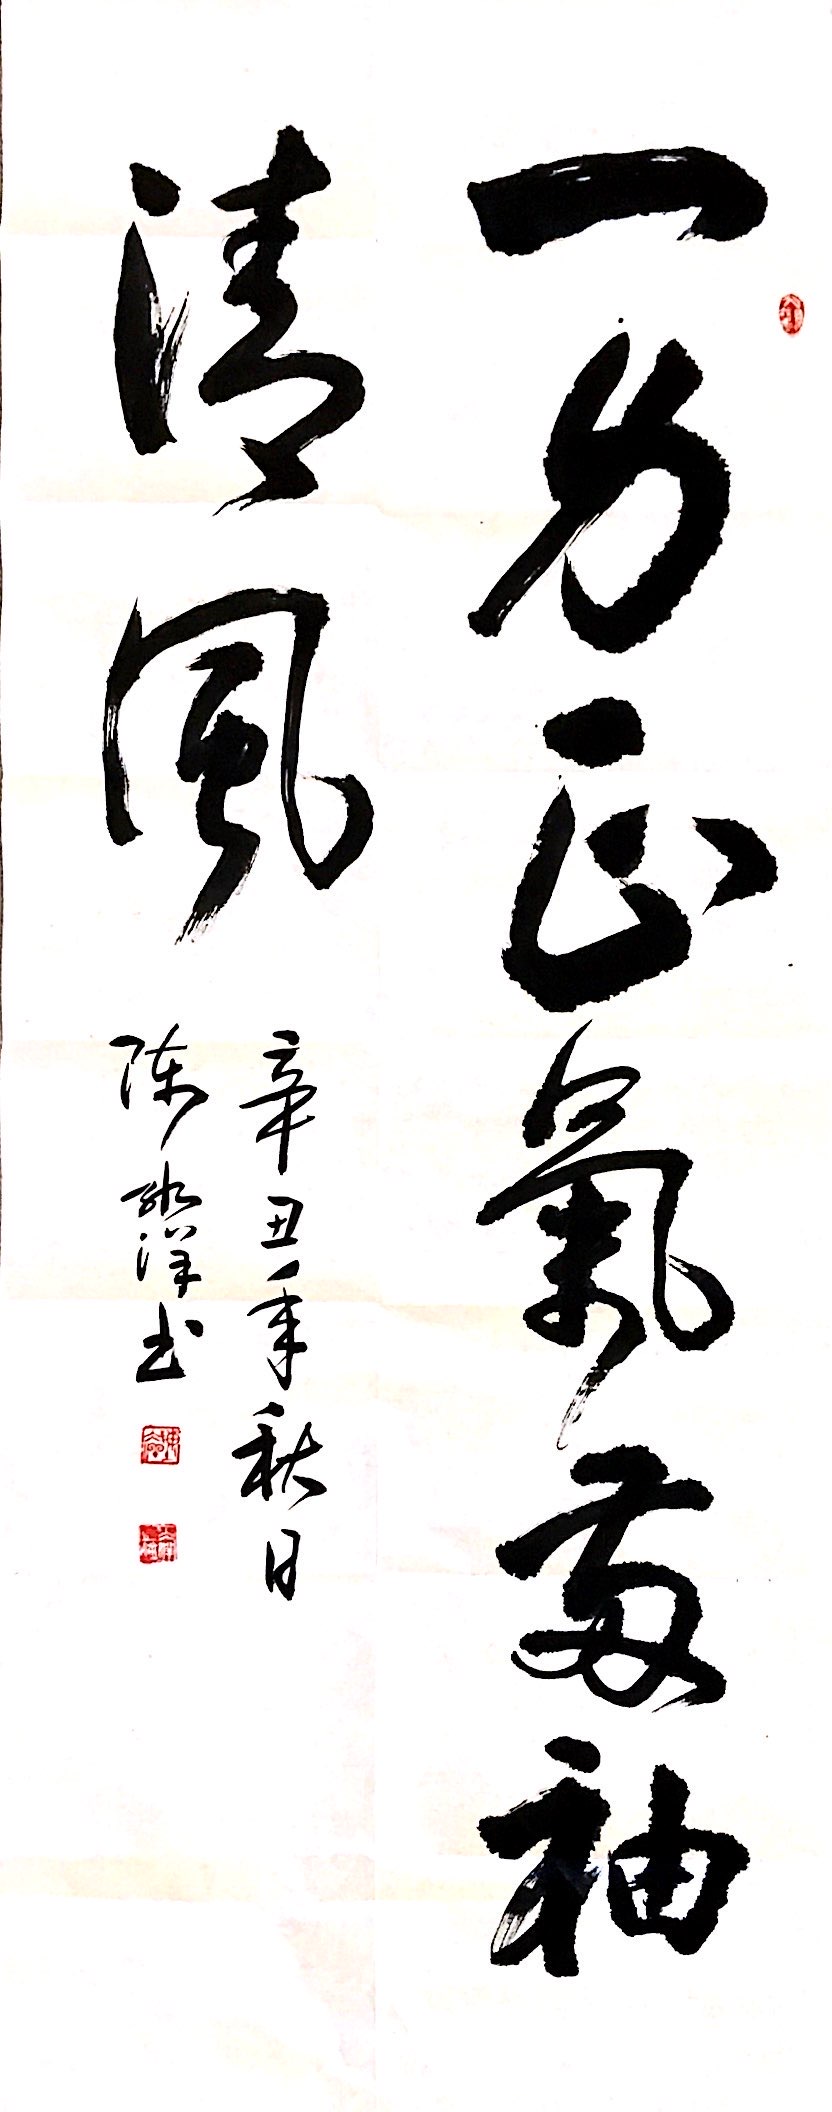 一身正氣兩袖
清風
辛丑年秋日
陈洋书